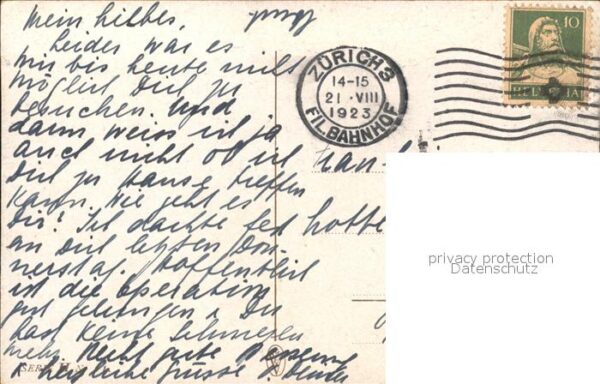 Mein liebes,
Leider war es
mir bis heute nicht
möglich Dich zu
besuchen. Und
dann weiss ich ja
auch nicht ob ich
Dich zu Hause treffen
kann. Wie geht es
Dir? Ich dachte fest
an Dich letzten Don-
nerstag. Hoffentlich
ist die Operation
gut gelungen & Du
hast keine Schmerzen
mehr. Recht gute
& herzliche Grüsse
ZÜRICH 3
14-15
21. VIII
1923
FIL. BAHNHOF
10
HELVETIA
privacy protection
Datenschutz
SERIE